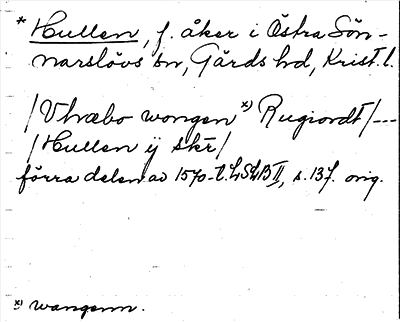 * Hullen, f. åker i Östra Sön-
narslövs sn, Gärds hd, Krist. l.
/Vhræbo wongen *) Rugiordt/---
/Hullen ij skr/
förra delen av 1570-t. LSkB II, s. 137. orig.
*) wangenn.